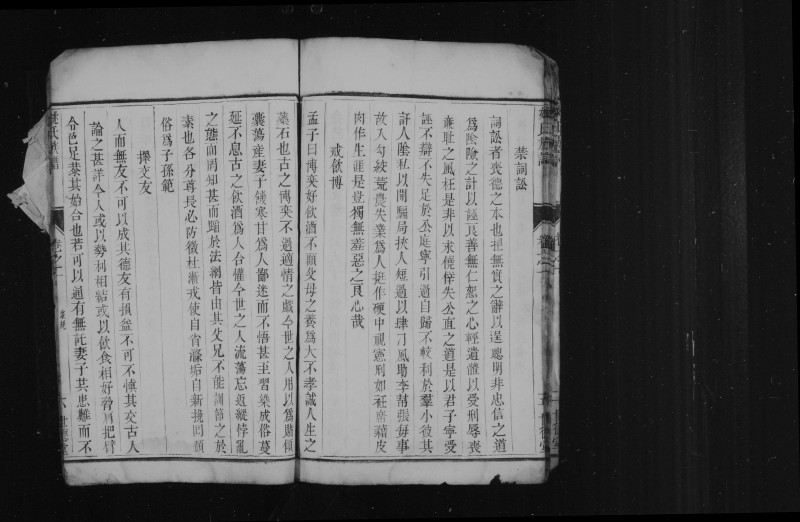 禁詞訟
詞訟者喪德之本也挺無實之辭以逞聰明非忠信之道
為陰險之計以誣良善無仁恕之心輕遺體以受刑辱喪
廉恥之風枉是非以求僥倖失公直之道是以君子寧受
誣不辯不失足於公庭寧引過自歸不較利於羣小彼其
訐人陰私以開騙局挾人短過以肆刁風助李幇張每事
故入勾絞荒農失業為人挺作硬中視憲刑如袵席藉皮
肉作生涯是豈獨無羞惡之良心哉
戒飲博
孟子曰博奕好飲酒不顧父母之養為大不孝誠人生之
藥石也古之博奕不過適情之戲今世之人用以為賭傾
囊蕩産妻子饑寒甘為人鄙迷而不悟甚至習染成俗蔓
延不息古之飲酒為人合懽今世之人流蕩忘返縱悖亂
之態而罔知甚而蹈於法網皆由其父兄不能訓節之於
素也各分尊長必防微杜漸戒使自省滌垢自新挽回頹
俗為子孫範
擇交友
人而無友不可以成其德友有損益不可不慎其交古人
論之甚詳今人或以勢利相結或以飲食相好脅肩把臂
令色足恭其始合也若可以通有無託妻子共患難而不
氏族譜
卷之一
家規
六
世德堂